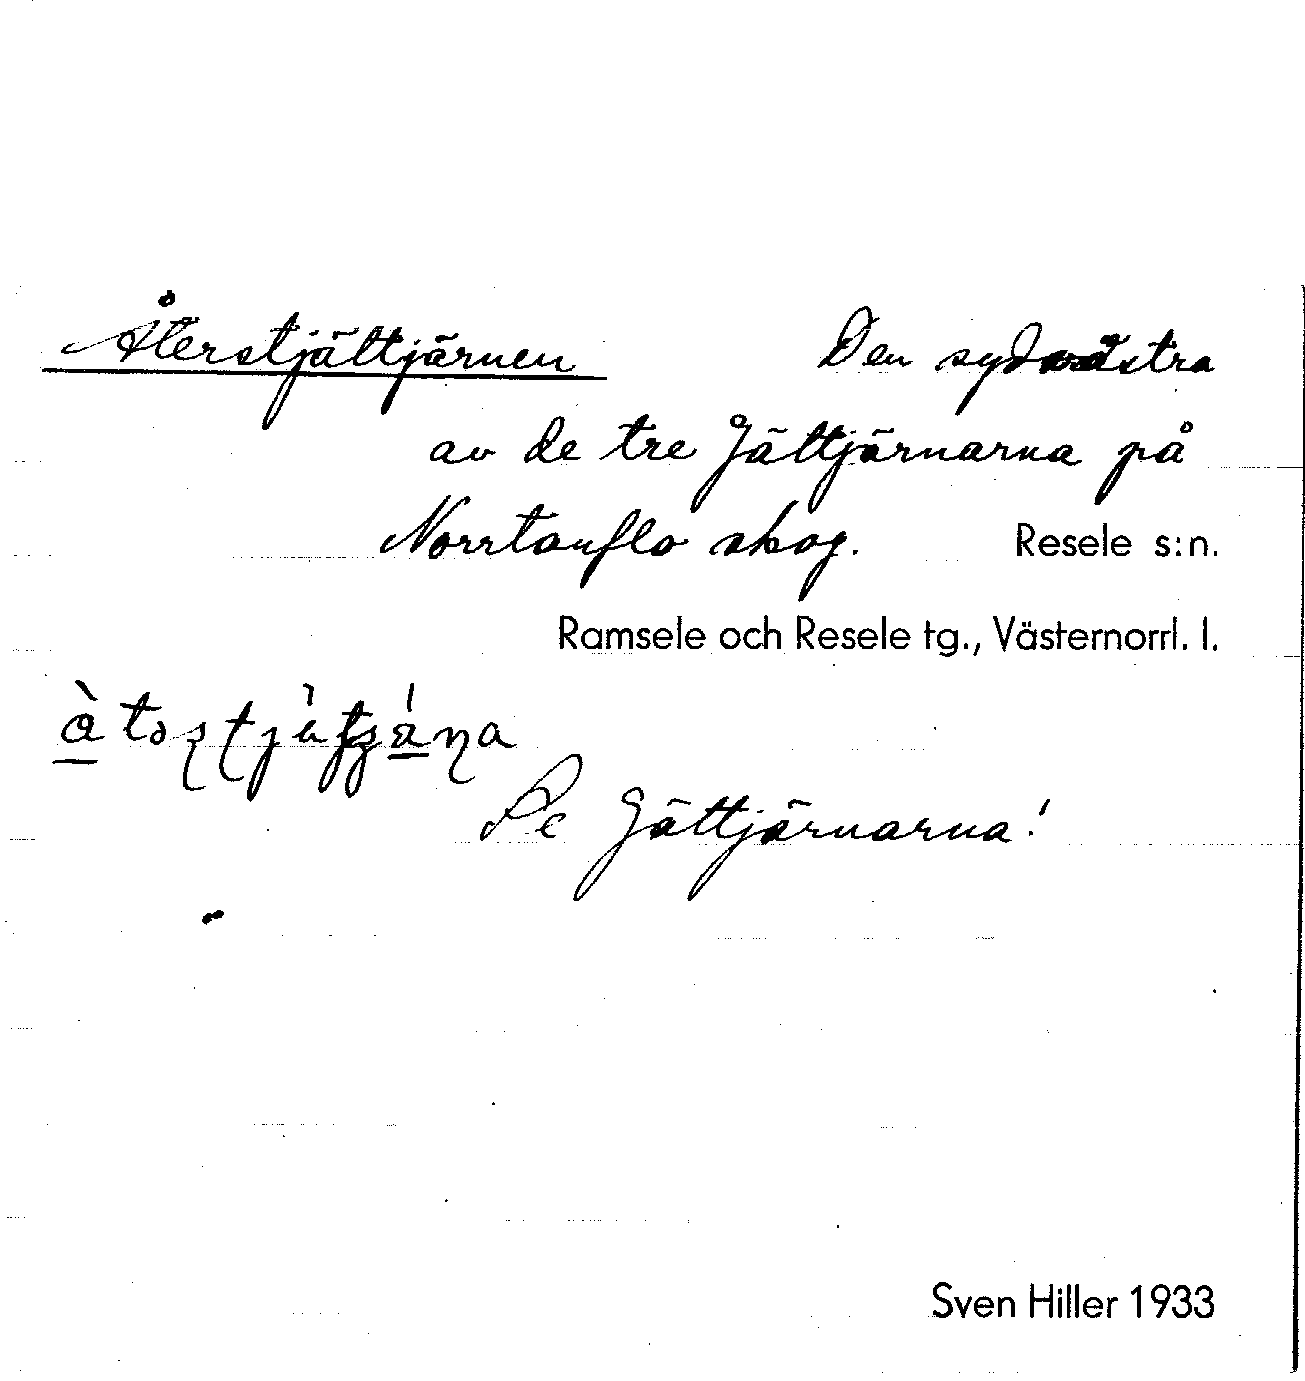 Återstjältjärnen Den sydvästra
av de tre Jältjärnarna på
Norrtanflo skog. Resele s:n.
Ramsele och Resele tg., Västernorrl. l.
Se Jältjärnarna!
Sven Hiller 1933